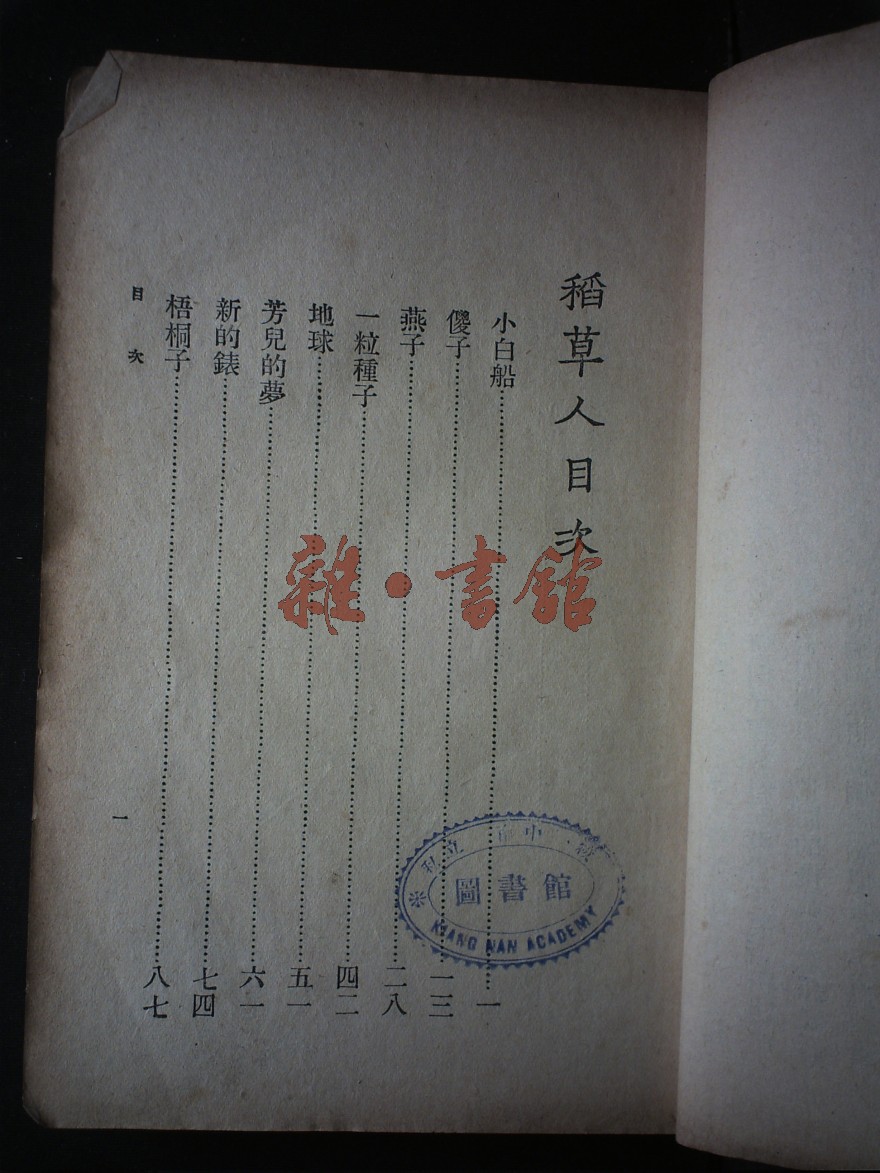 稻草人目次
小白船……一
儍子……一三
燕子……二八
一粒種子……四二
地球……五一
芳兒的夢……六一
新的錶……七四
梧桐子……八七
目次
一
雜·書館
私立 中
圖書館
KIANG NAN ACADEMY